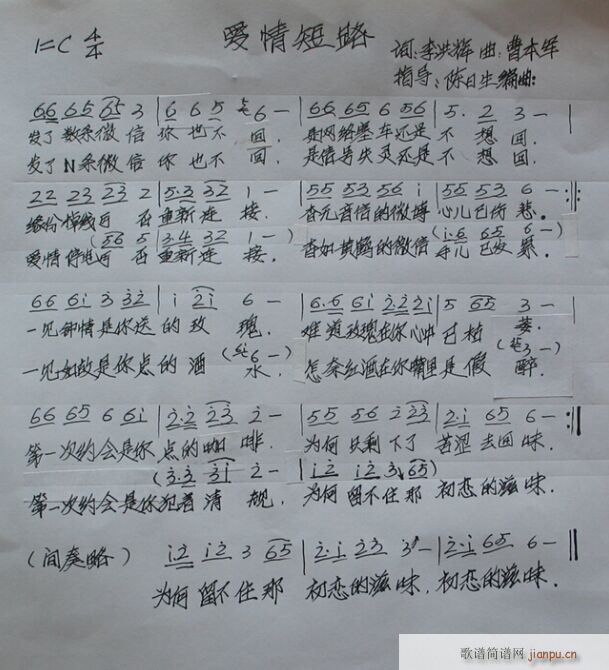 爱情短路
1=C 4/4
词:李洪辉 曲:曹本军
指导:陈日生 编曲:
66 65 65 3 | 6 6 5 6 - | 66 65 6 56 | 5. 2 3 - |
发了数条微信 你也不回. 是网络塞车还是不想回.
发了N条微信 你也不回. 是信号失灵还是不想回.
22 23 23 2 | 5·3 32 1 - | 55 53 56 i | 55 53 6 - :||
缘份掉线 再重新连接. 杳无音信的微博 心儿已伤悲.
(56 5 | 3·4 32 1 -) (i·6 65 6 -)
爱情停电 再重新连接. 杳如黄鹤的微信 已发霉.
66 6i 3 32 | i 2i 6 - | 6·6 6i 2·22i | 5 65 3 - |
一见钟情是你送的玫瑰. 难道玫瑰在你心中已枯萎.
一见如故是你点的酒水. 怎奈红酒在你嘴里是假醉.
66 65 6 6i | 2·2 23 2 - | 55 56 2 23 | 2·i 65 6 - :||
第一次约会是你点的咖啡. 为何只剩下了苦涩去回味.
(3·3 3i 2 - | i2 i2 3 65)
第一次约会是你犯着清靓. 为何留不住那初恋的滋味.
(间奏略) i2 i2 3 65 | 2·i 23 3 - | 2·i 65 6 - ||
为何留不住那 初恋的滋味, 初恋的滋味.
歌谱简谱网
jianpu.cn